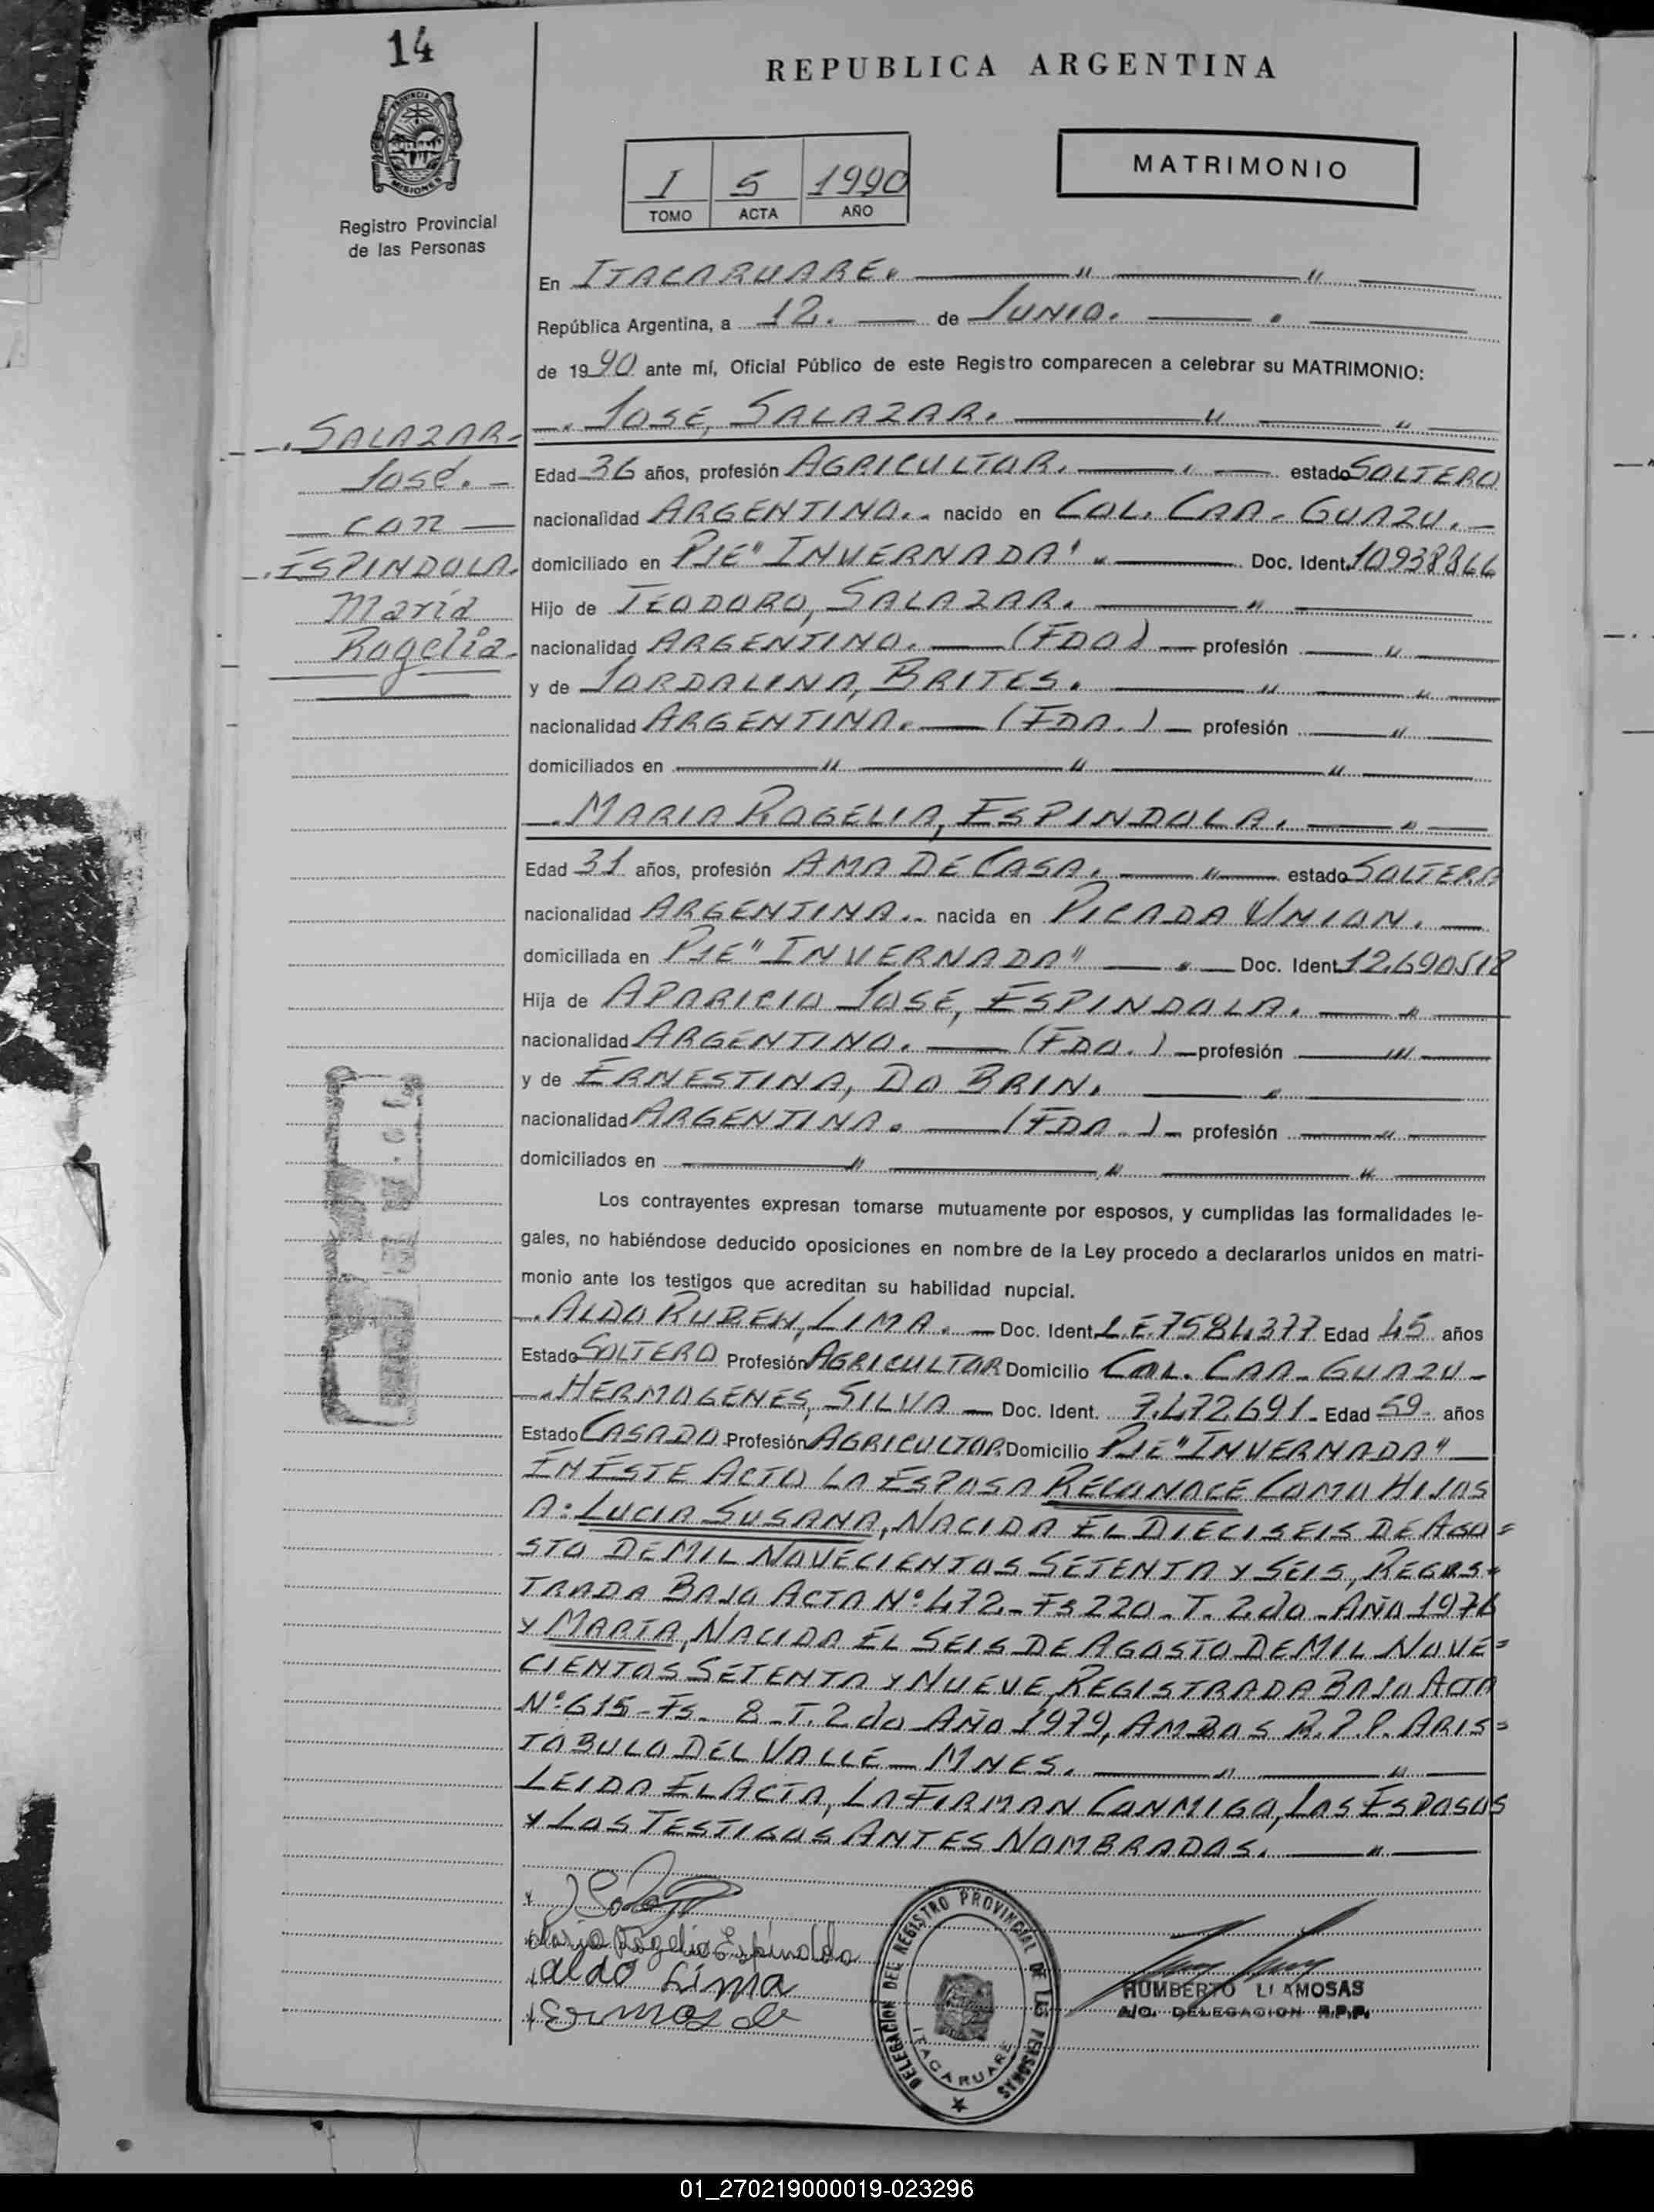 14
REPUBLICA ARGENTINA
PROVINCIA DE MISIONES
MATRIMONIO
I 5 1990
TOMO ACTA AÑO
Registro Provincial
de las Personas
En ITACARUARE. — " — " —
República Argentina, a 12. — de JUNIO. — . —
de 1990 ante mí, Oficial Público de este Registro comparecen a celebrar su MATRIMONIO:
—. JOSE, SALAZAR. — " — " —
—. SALAZAR-
José. -
— con —
-. ESPINDOLA.
María
Rogelia.
Edad 36 años, profesión AGRICULTOR. — . — estado SOLTERO
nacionalidad ARGENTINO.. nacido en COL. CAA-GUAZU. —
domiciliado en PJE "INVERNADA" " — Doc. Ident. 10938866
Hijo de TEODORO, SALAZAR. — " —
nacionalidad ARGENTINO. — (FDO) — profesión — " —
y de JORDALINA, BRITES. — " — " —
nacionalidad ARGENTINA. — (FDA.) — profesión — " —
domiciliados en — " — " — " —
—. MARIA ROGELIA, ESPINDOLA. — " —
Edad 31 años, profesión AMA DE CASA. — " — estado SOLTERA
nacionalidad ARGENTINA.. nacida en PICADA UNION. —
domiciliada en PJE "INVERNADA" — " — Doc. Ident. 12.690.512
Hija de APARICIO JOSÉ, ESPINDOLA. — " —
nacionalidad ARGENTINO. — (FDO.) — profesión — " —
y de ERNESTINA, DO BRIN. — " —
nacionalidad ARGENTINA. — (FDA..) — profesión — " —
domiciliados en — " — " — " —
Los contrayentes expresan tomarse mutuamente por esposos, y cumplidas las formalidades le-
gales, no habiéndose deducido oposiciones en nombre de la Ley procedo a declararlos unidos en matri-
monio ante los testigos que acreditan su habilidad nupcial.
—. ALDO RUBEN, LIMA. — Doc. Ident. L.E.7584.377 Edad 45 años
Estado SOLTERO Profesión AGRICULTOR Domicilio COL. CAA-GUAZU-
—. HERMOGENES, SILVA — Doc. Ident. 7.472.691- Edad 59- años
Estado CASADO Profesión AGRICULTOR Domicilio PJE "INVERNADA" —
EN ESTE ACTO LA ESPOSA RECONOCE COMO HIJAS
A: LUCIA SUSANA, NACIDA EL DIECISEIS DE AGO=
STO DE MIL NOVECIENTOS SETENTA Y SEIS, REGIS=
TRADA BAJO ACTA Nº 472- Fs 220- T. 2do- AÑO 1976
Y MARTA, NACIDA EL SEIS DE AGOSTO DE MIL NOVE=
CIENTOS SETENTA Y NUEVE, REGISTRADA BAJO ACTA
Nº 615- Fs- 8- T. 2do AÑO 1979, AMBAS R.P.P. ARIS=
TOBULO DEL VALLE — MNES. — " — " —
LEIDA EL ACTA, LA FIRMAN CONMIGO, LOS ESPOSOS
Y LOS TESTIGOS ANTES NOMBRADOS. — " —
María Rogelia Espindola
aldo Lima
DELEGACION DEL REGISTRO PROVINCIAL DE LAS PERSONAS
ITACARUARE
HUMBERTO LLAMOSAS
A/C. DELEGACION R.P.P.
01_270219000019-023296